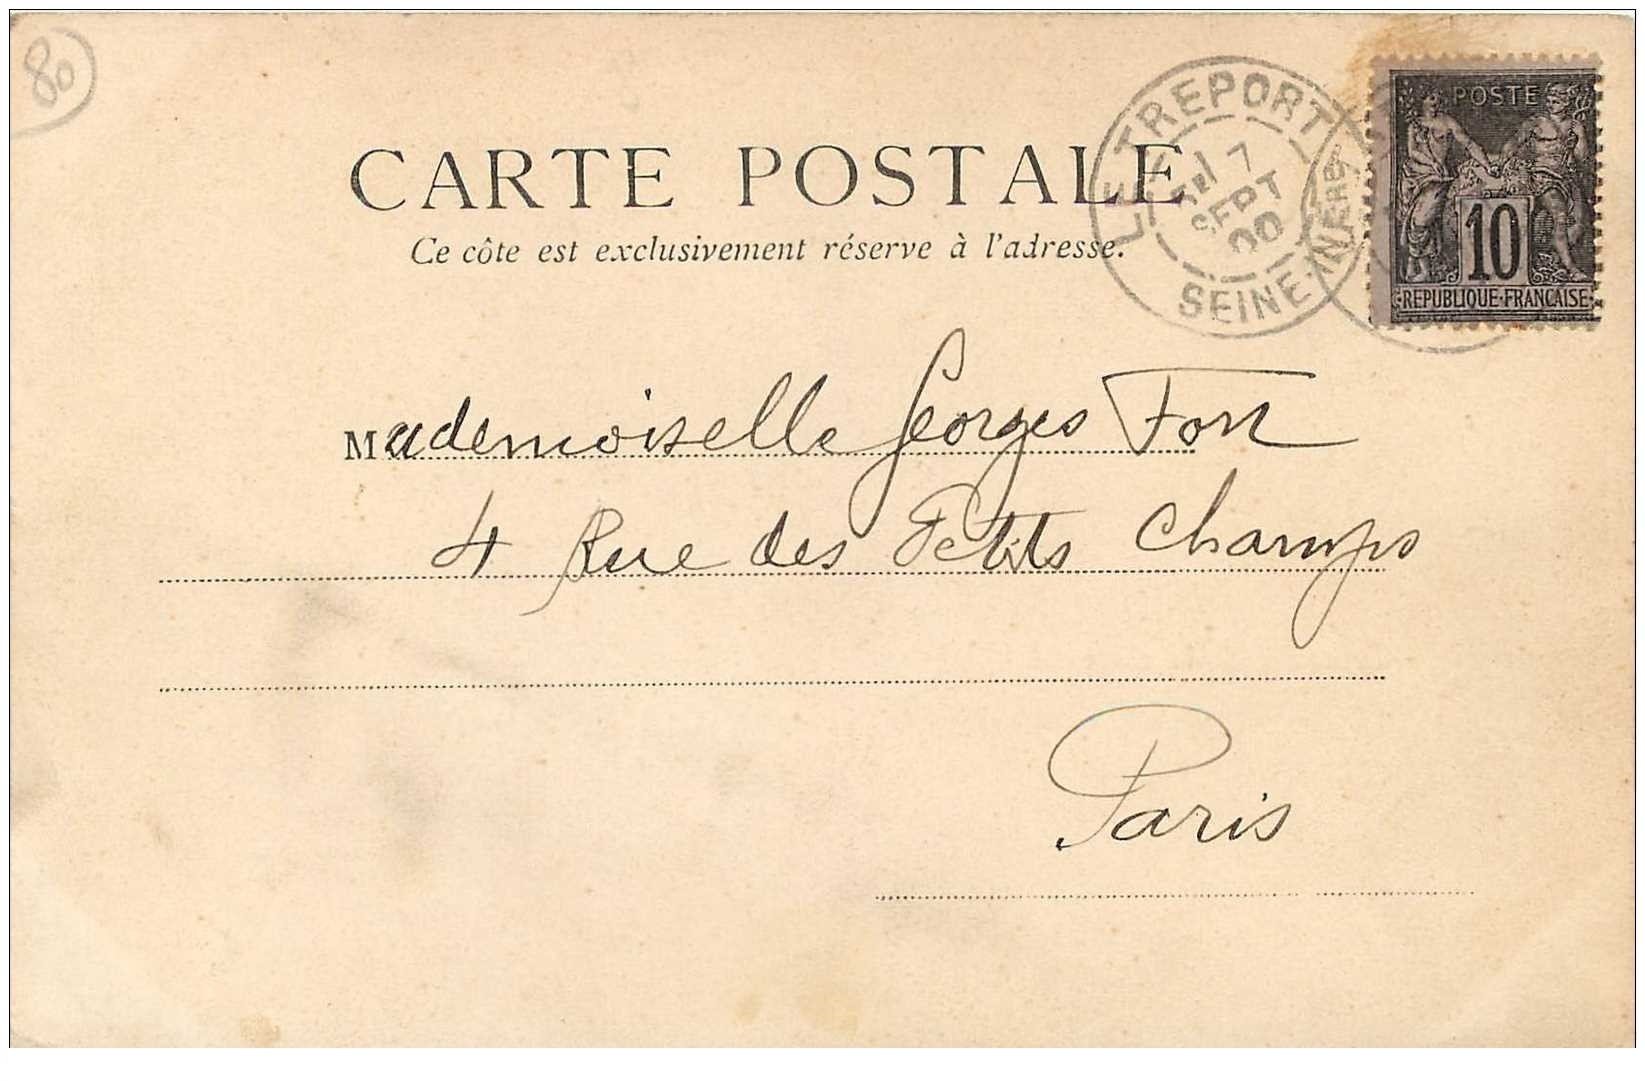 80
CARTE POSTALE
Ce côte est exclusivement réserve à l'adresse.
LE TREPORT
7
SEPT
00
SEINE-INFRE
POSTE
10
REPUBLIQUE·FRANCAISE
Mademoiselle Georges Fort
4 Rue des Petits Champs
Paris